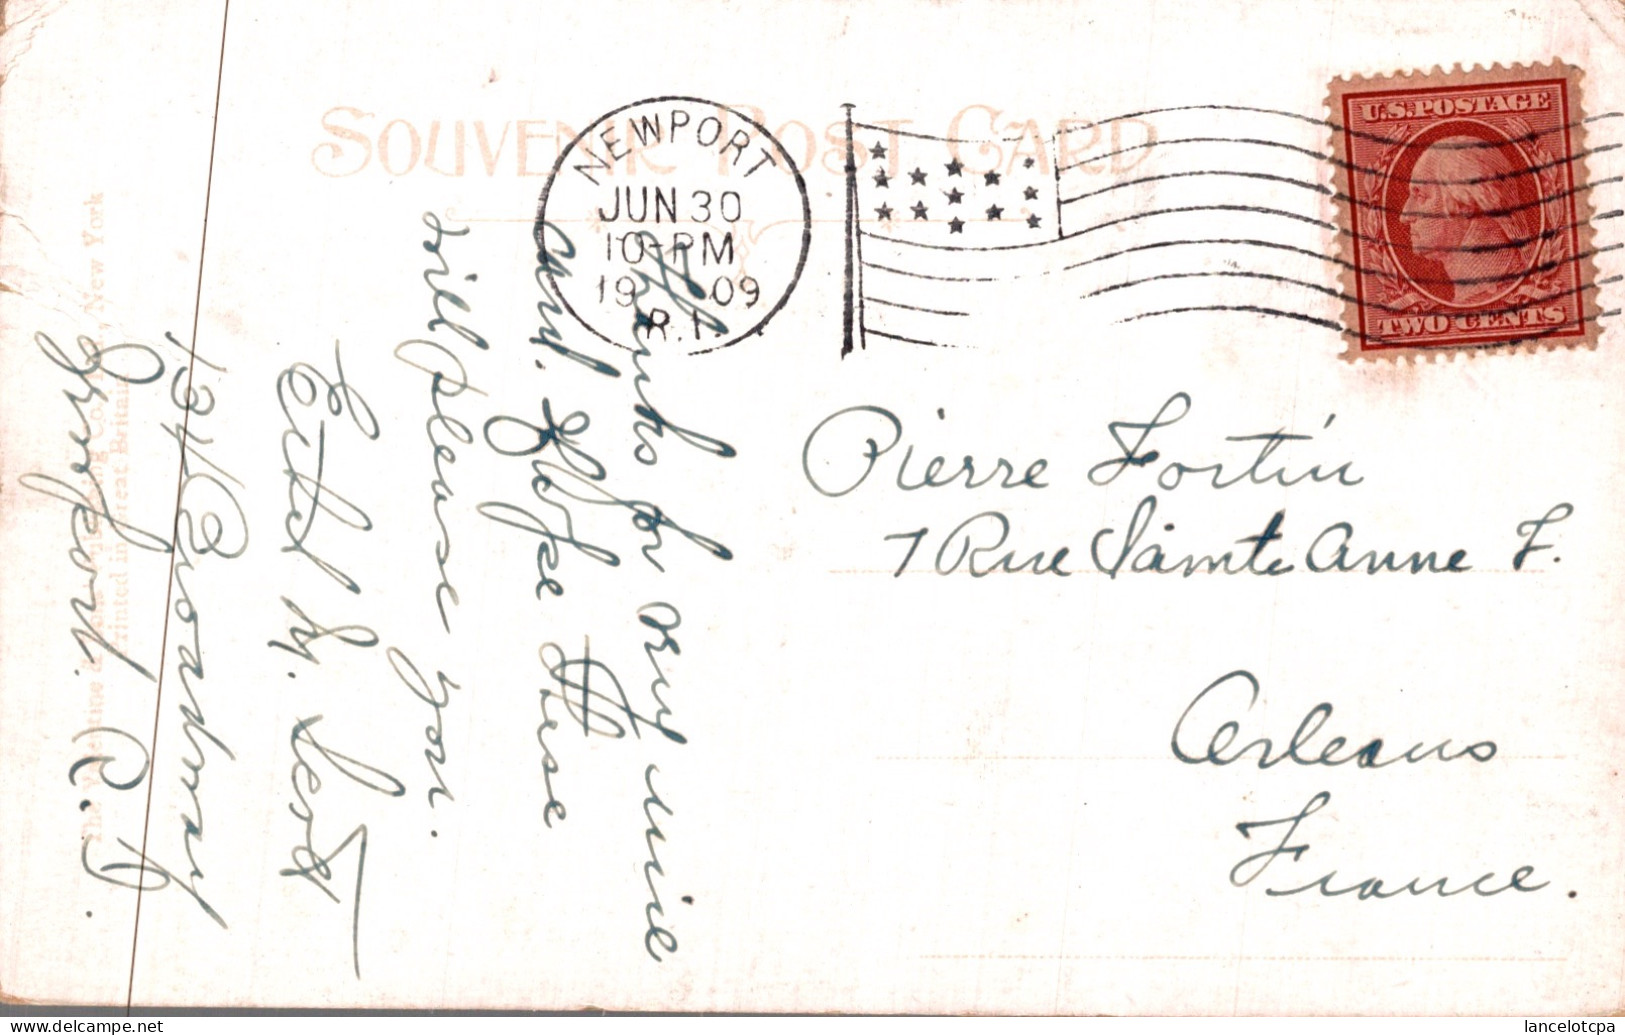 SOUVENIR POST CARD
NEWPORT
JUN 30
10-PM
19 09
R.I.
U.S. POSTAGE
TWO CENTS
Pierre Fortin
7 Rue Sainte Anne F.
Orleans
France.
Thanks for my nice
card. Hope these
will please you.
Ethel M.
134 Broadway
Newport. R.I.
The Valentine & Sons Publishing Co., New York
Printed in Great Britain
www.delcampe.net
lancelotcpa